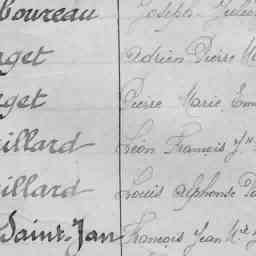 boureau Joseph Julie
get Adrien Pierre M
get Pierre Marie Em
illard Léon François Jn
illard Louis Alphonse Pa
Saint-Jan François Jean Me